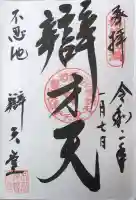 奉拝
令和二年
一月七日
辯才天
不忍池
辯天堂